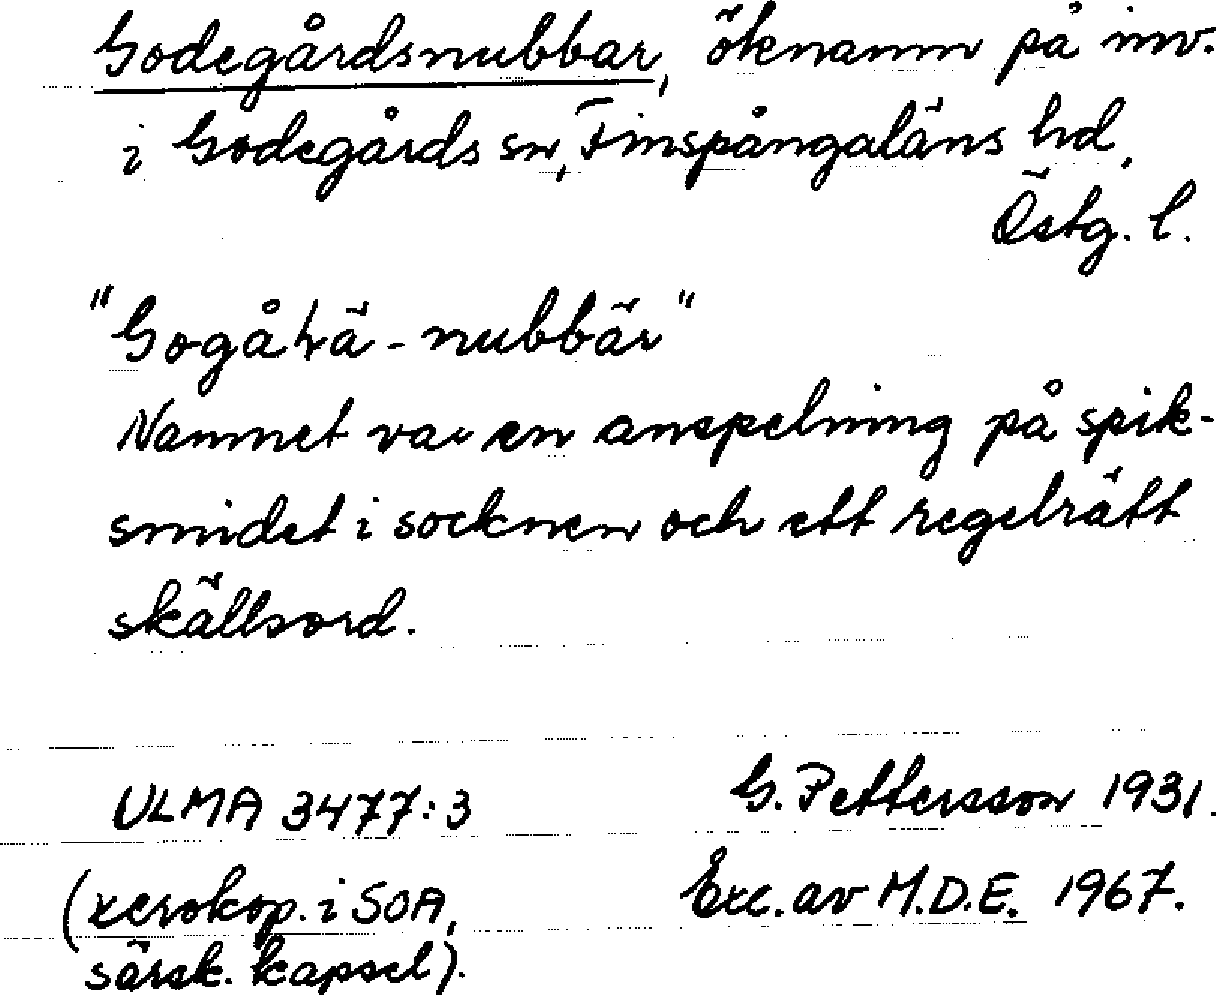 Godegårdsnubbar, öknamn på inv.
i Godegårds sn, Finspångaläns hd,
Östg. l.
"Gogåɽä-nubbär"
Namnet var en anspelning på spik-
smidet i socknen och ett regelrätt
skällsord.
ULMA 3477:3
G. Pettersson 1931.
(xerokop. i SOA,
särsk. kapsel).
Exc. av M.D.E. 1967.